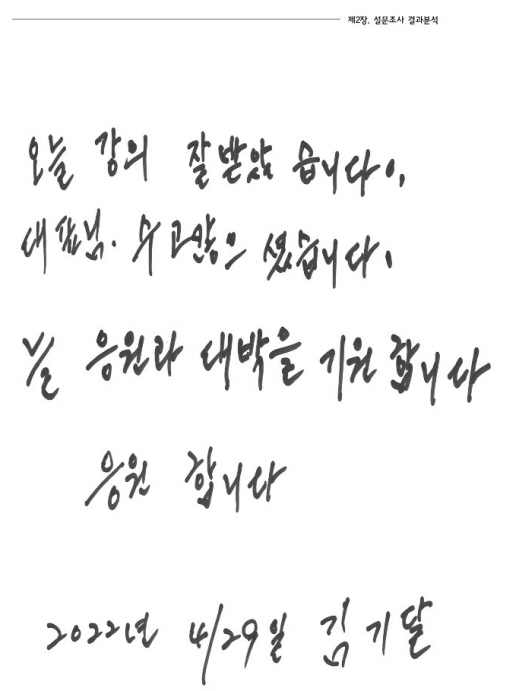 제2장. 설문조사 결과분석
오늘 강의 잘받았습니다.
대표님. 수고많으셨습니다.
늘 응원과 대박을 기원합니다
응원 합니다
2022년 4/29일 김기달